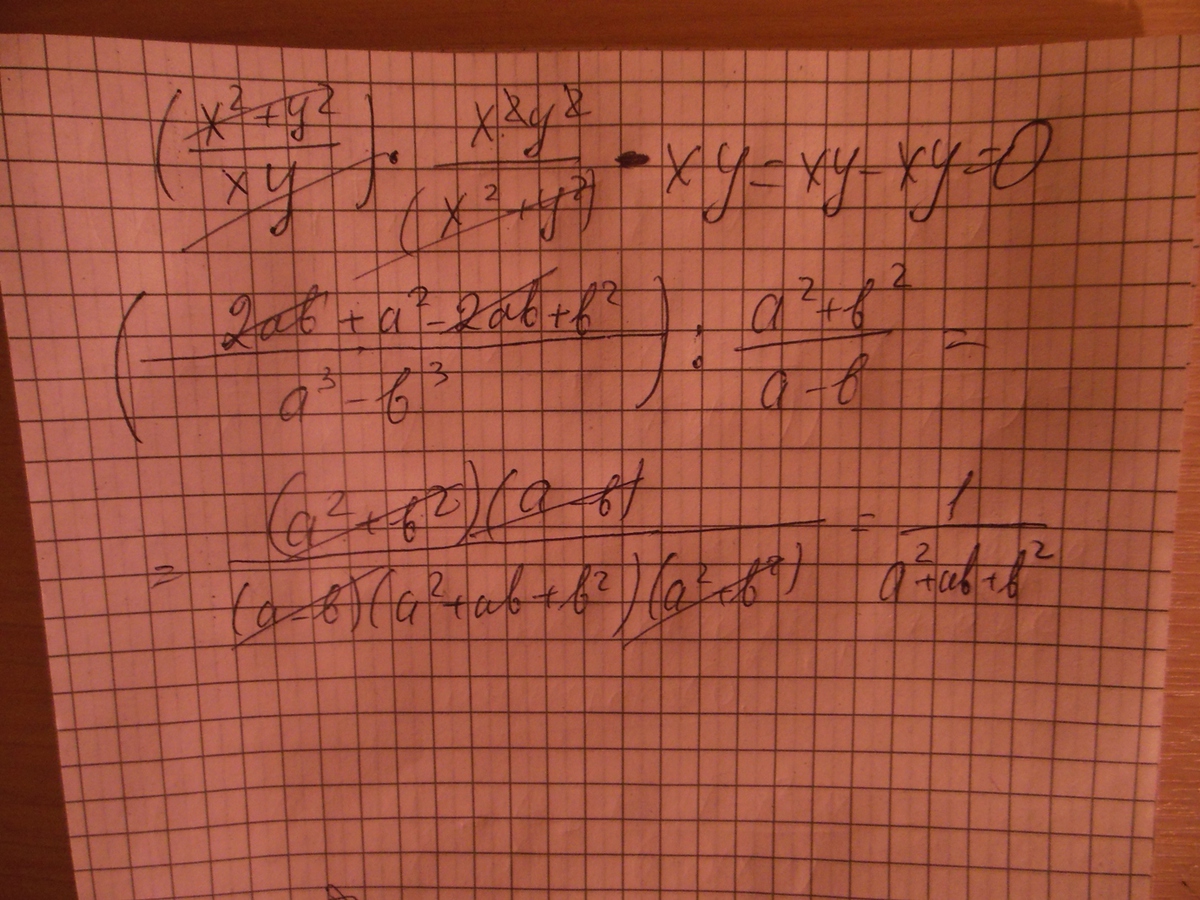 (x²+y²/xy) · x²y²/(x²+y²) - xy = xy - xy = 0
(2ab + a² - 2ab + b²/a³ - b³) : a²+b²/a-b =
= (a²+b²)(a-b)/(a-b)(a²+ab+b²)(a²+b²) = 1/a²+ab+b²